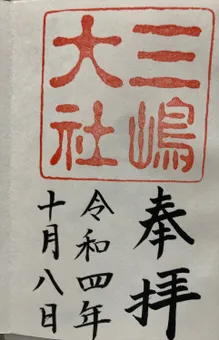 三嶋
大社
奉拝
令和四年
十月八日